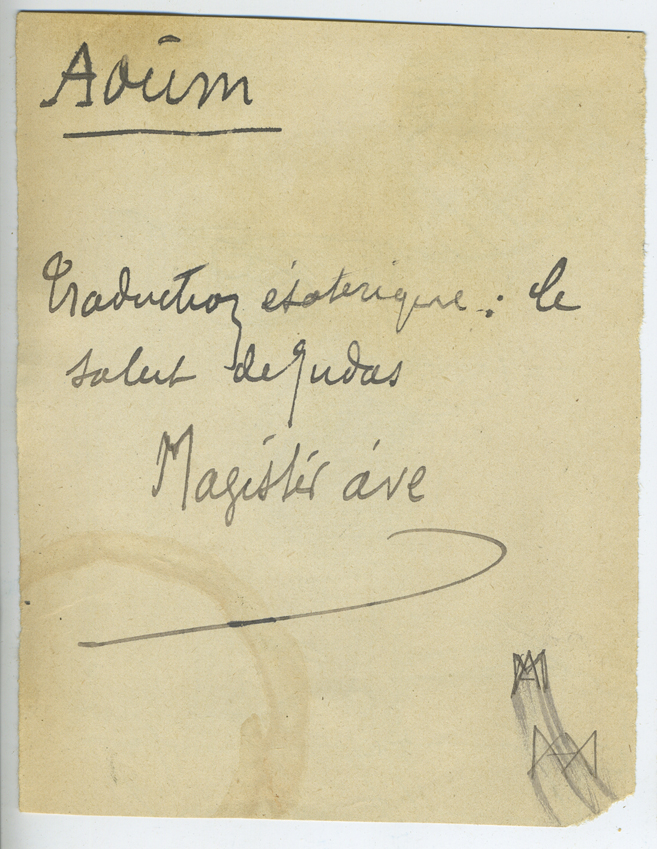 Aoûm
Traduction ésoterique : le
salut de Judas
Magistér áve